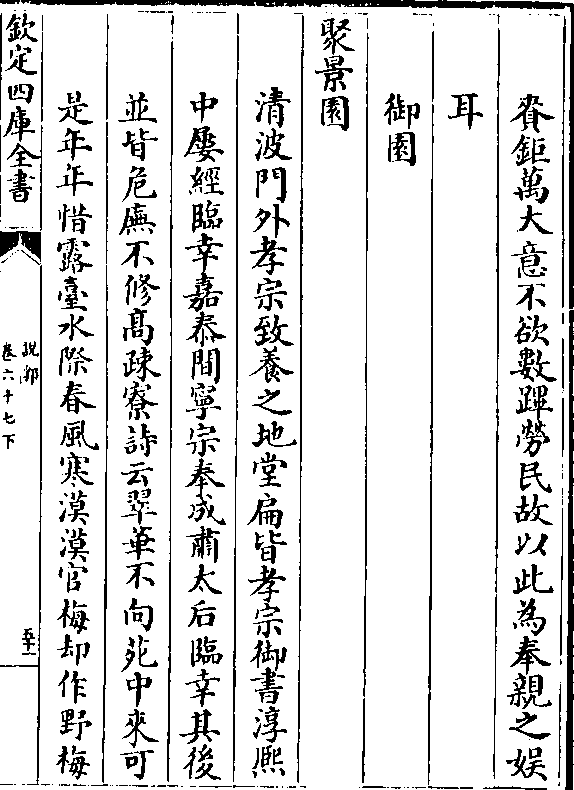 費鉅萬大意不欲數蹕勞民故以此為奉親之娱
耳
御園
聚景園
清波門外孝宗致養之地堂扁皆孝宗御書淳熙
中屢經臨幸嘉泰間寧宗奉成肅太后臨幸其後
並皆危廡不修髙疎寮詩云翠華不向苑中來可
是年年惜露臺水際春風寒漠漠官梅却作野梅
欽定四庫全書
說郛
卷六十七下